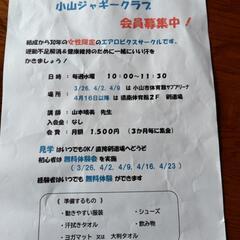 小山ジャギークラブ
会員募集中！
結成から30年の女性限定のエアロビクスサークルです。
運動不足解消＆健康維持のために一緒にいい汗を
かきましょう！
日 時 ： 毎週水曜 10：00～11：30
場 所 ： 3/26、4/2、4/9 は小山市体育館サブアリーナ
4月16日以降は 県南体育館2F 剣道場
講 師 ： 山本晴美 先生
入会金 ： なし
会 費 ： 月額 1,500円 （3か月毎に集金）
見学 はいつでもOK! 直接剣道場へどうぞ
初心者は 無料体験会 を実施
（ 3/26、4/2、4/9、4/16、4/23 ）
経験者はいつでも 無料体験 ができます
〔 準備するもの 〕
・動きやすい服装 ・シューズ
・汗拭きタオル ・飲み物
・ヨガマット 又は 大判タオル